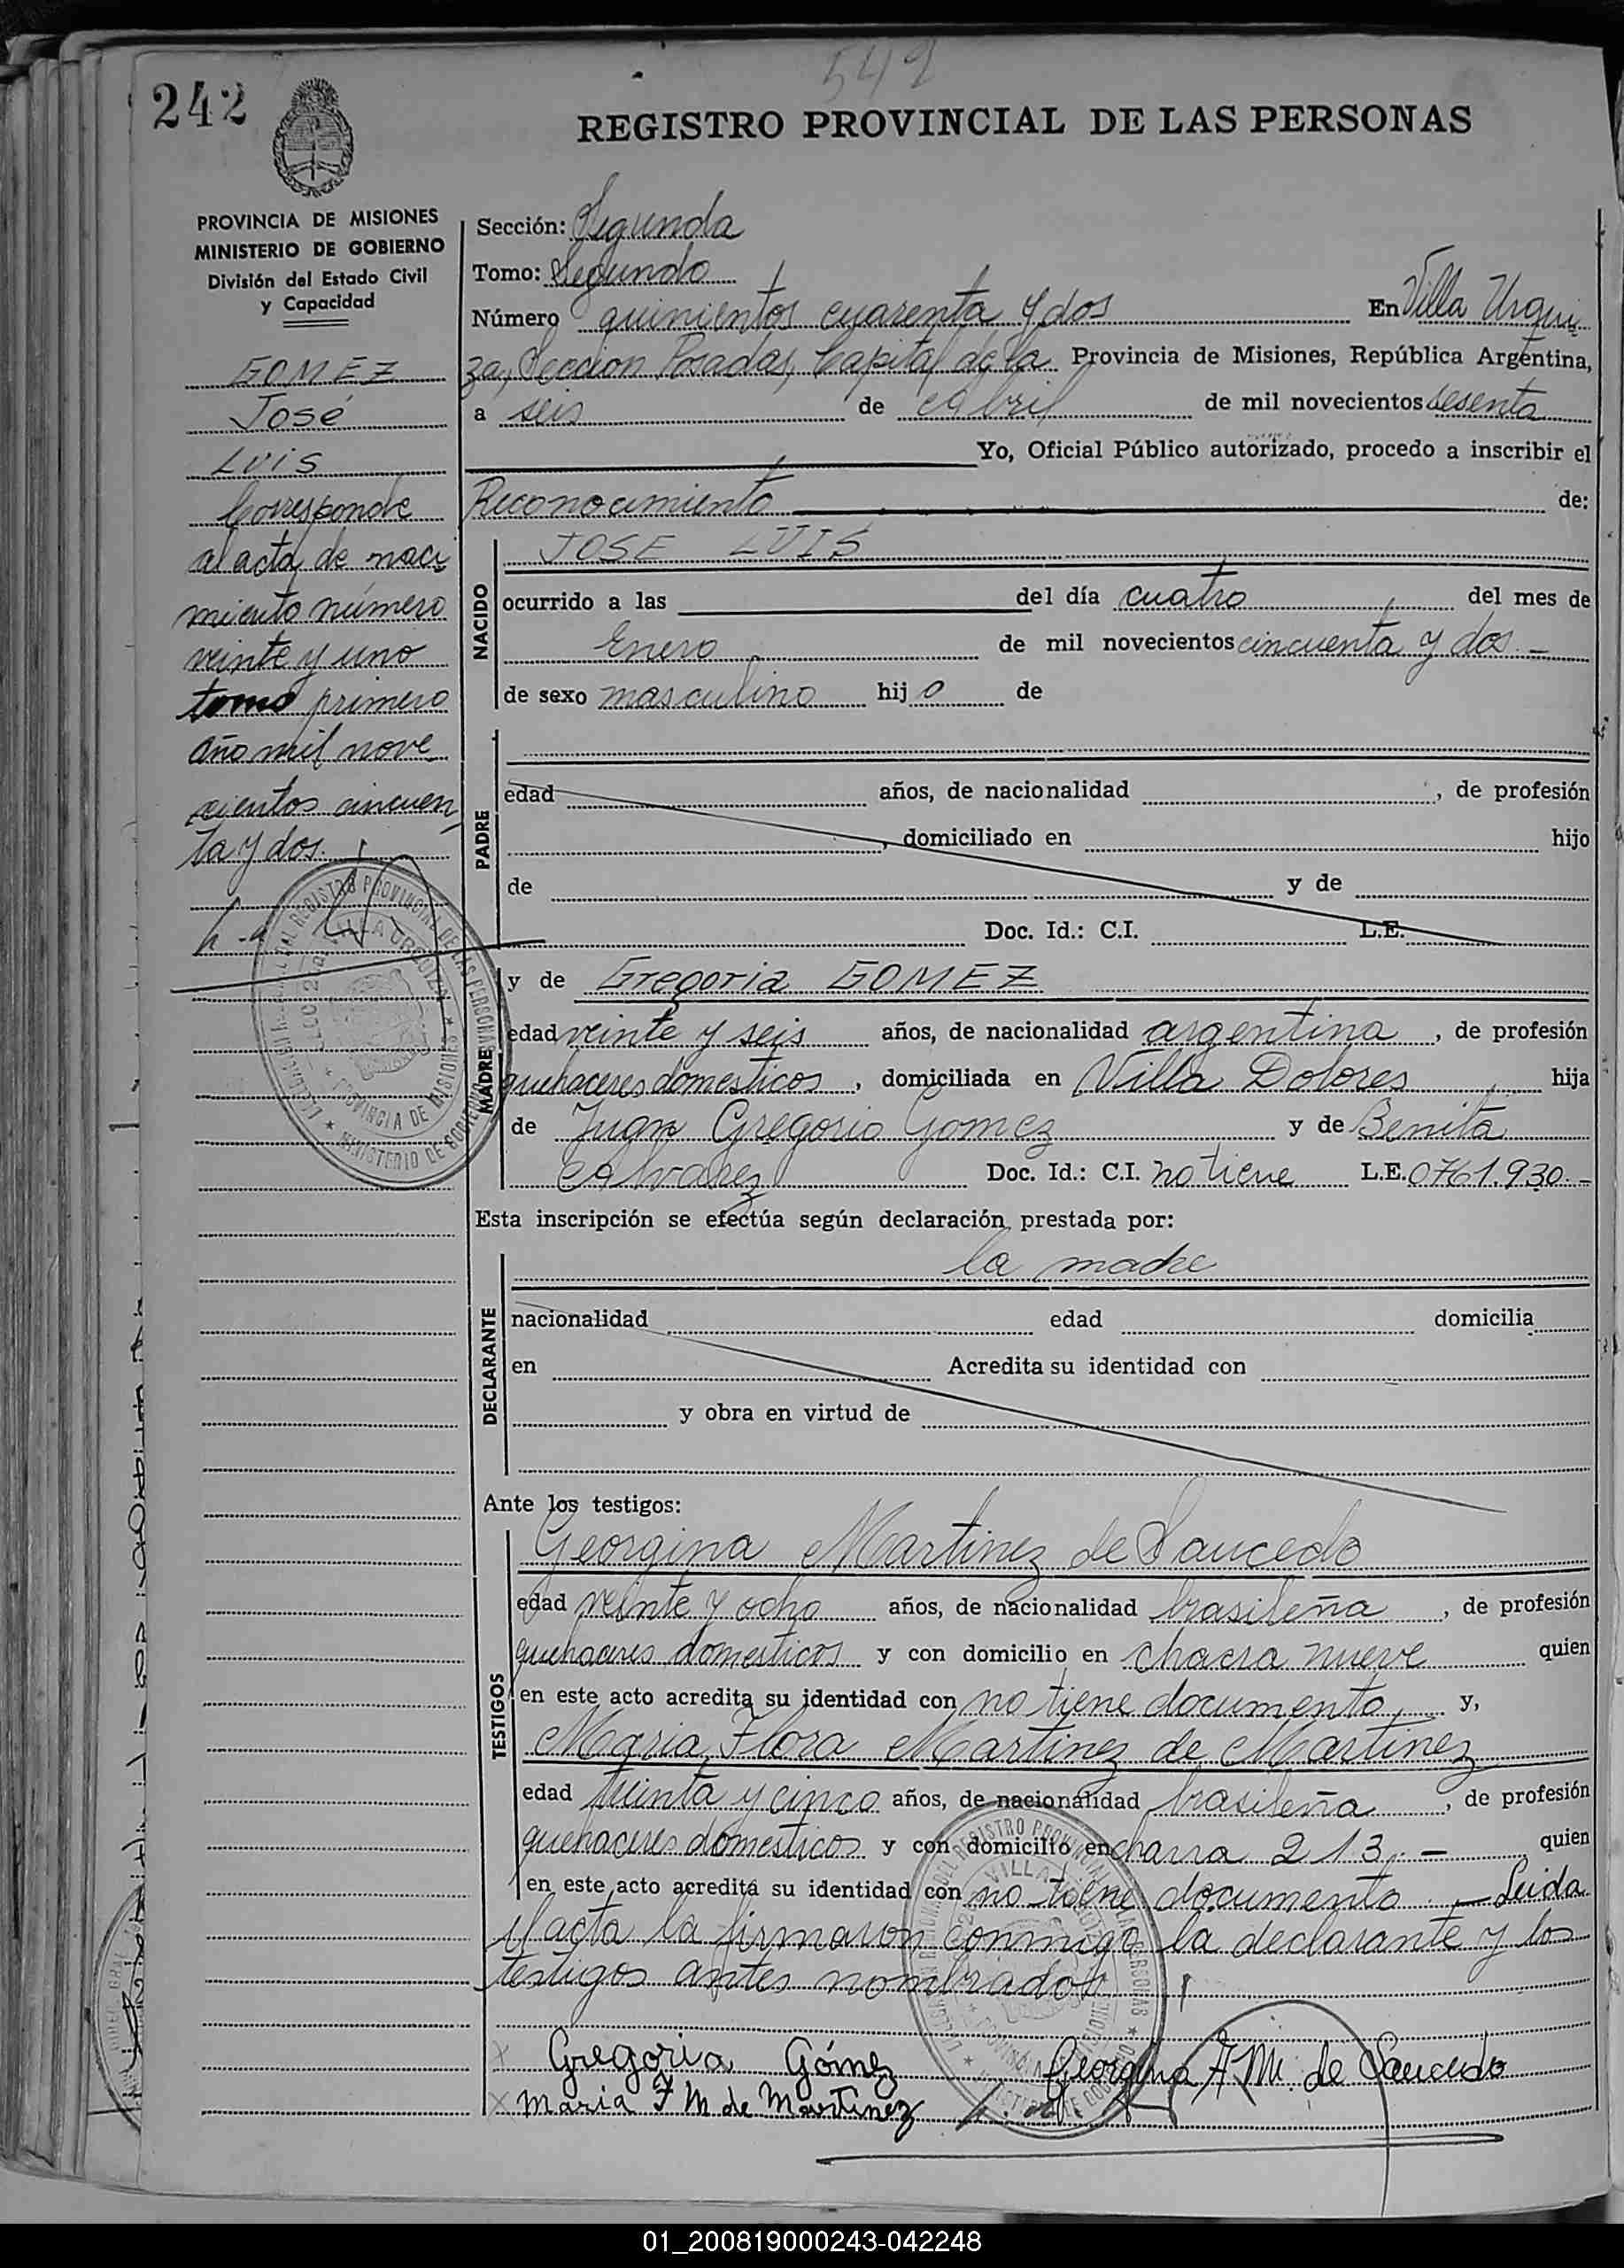 542
242
REGISTRO PROVINCIAL DE LAS PERSONAS
PROVINCIA DE MISIONES
MINISTERIO DE GOBIERNO
División del Estado Civil
y Capacidad
GOMEZ
José
Luis
Corresponde
al acta de naci
miento número
veinte y uno
tomo primero
año mil nove
cientos cincuen
ta y dos.
Sección: Segunda
Tomo: Segundo
Número quinientos cuarenta y dos En Villa Urqui
za, Seccion Posadas, Capital de la Provincia de Misiones, República Argentina,
a seis de Abril de mil novecientos sesenta
Yo, Oficial Público autorizado, procedo a inscribir el
Reconocimiento de:
NACIDO
JOSE LUIS
ocurrido a las del día cuatro del mes de
Enero de mil novecientos cincuenta y dos.-
de sexo masculino hijo de
PADRE
edad años, de nacionalidad , de profesión
, domiciliado en hijo
de y de
Doc. Id.: C.I. L.E.
MADRE
y de Gregoria GOMEZ
edad veinte y seis años, de nacionalidad argentina, de profesión
quehaceres domesticos, domiciliada en Villa Dolores hija
de Juan Gregorio Gomez y de Benita
Alvarez Doc. Id.: C.I. no tiene L.E. 0761.930.-
Esta inscripción se efectúa según declaración prestada por:
DECLARANTE
la madre
nacionalidad edad domicilia
en Acredita su identidad con
y obra en virtud de
Ante los testigos:
TESTIGOS
Georgina Martinez de Saucedo
edad veinte y ocho años, de nacionalidad brasileña, de profesión
quehaceres domesticos y con domicilio en chacra nueve quien
en este acto acredita su identidad con no tiene documento y,
Maria Flora Martinez de Martinez
edad treinta y cinco años, de nacionalidad brasileña, de profesión
quehaceres domesticos y con domicilio en chacra 213.- quien
en este acto acredita su identidad con no tiene documento.- Leida
el acta la firmaron conmigo la declarante y los
testigos antes nombrados
Gregoria Gómez Georgina F M. de Saucedo
Maria F M de Martinez
01_200819000243-042248